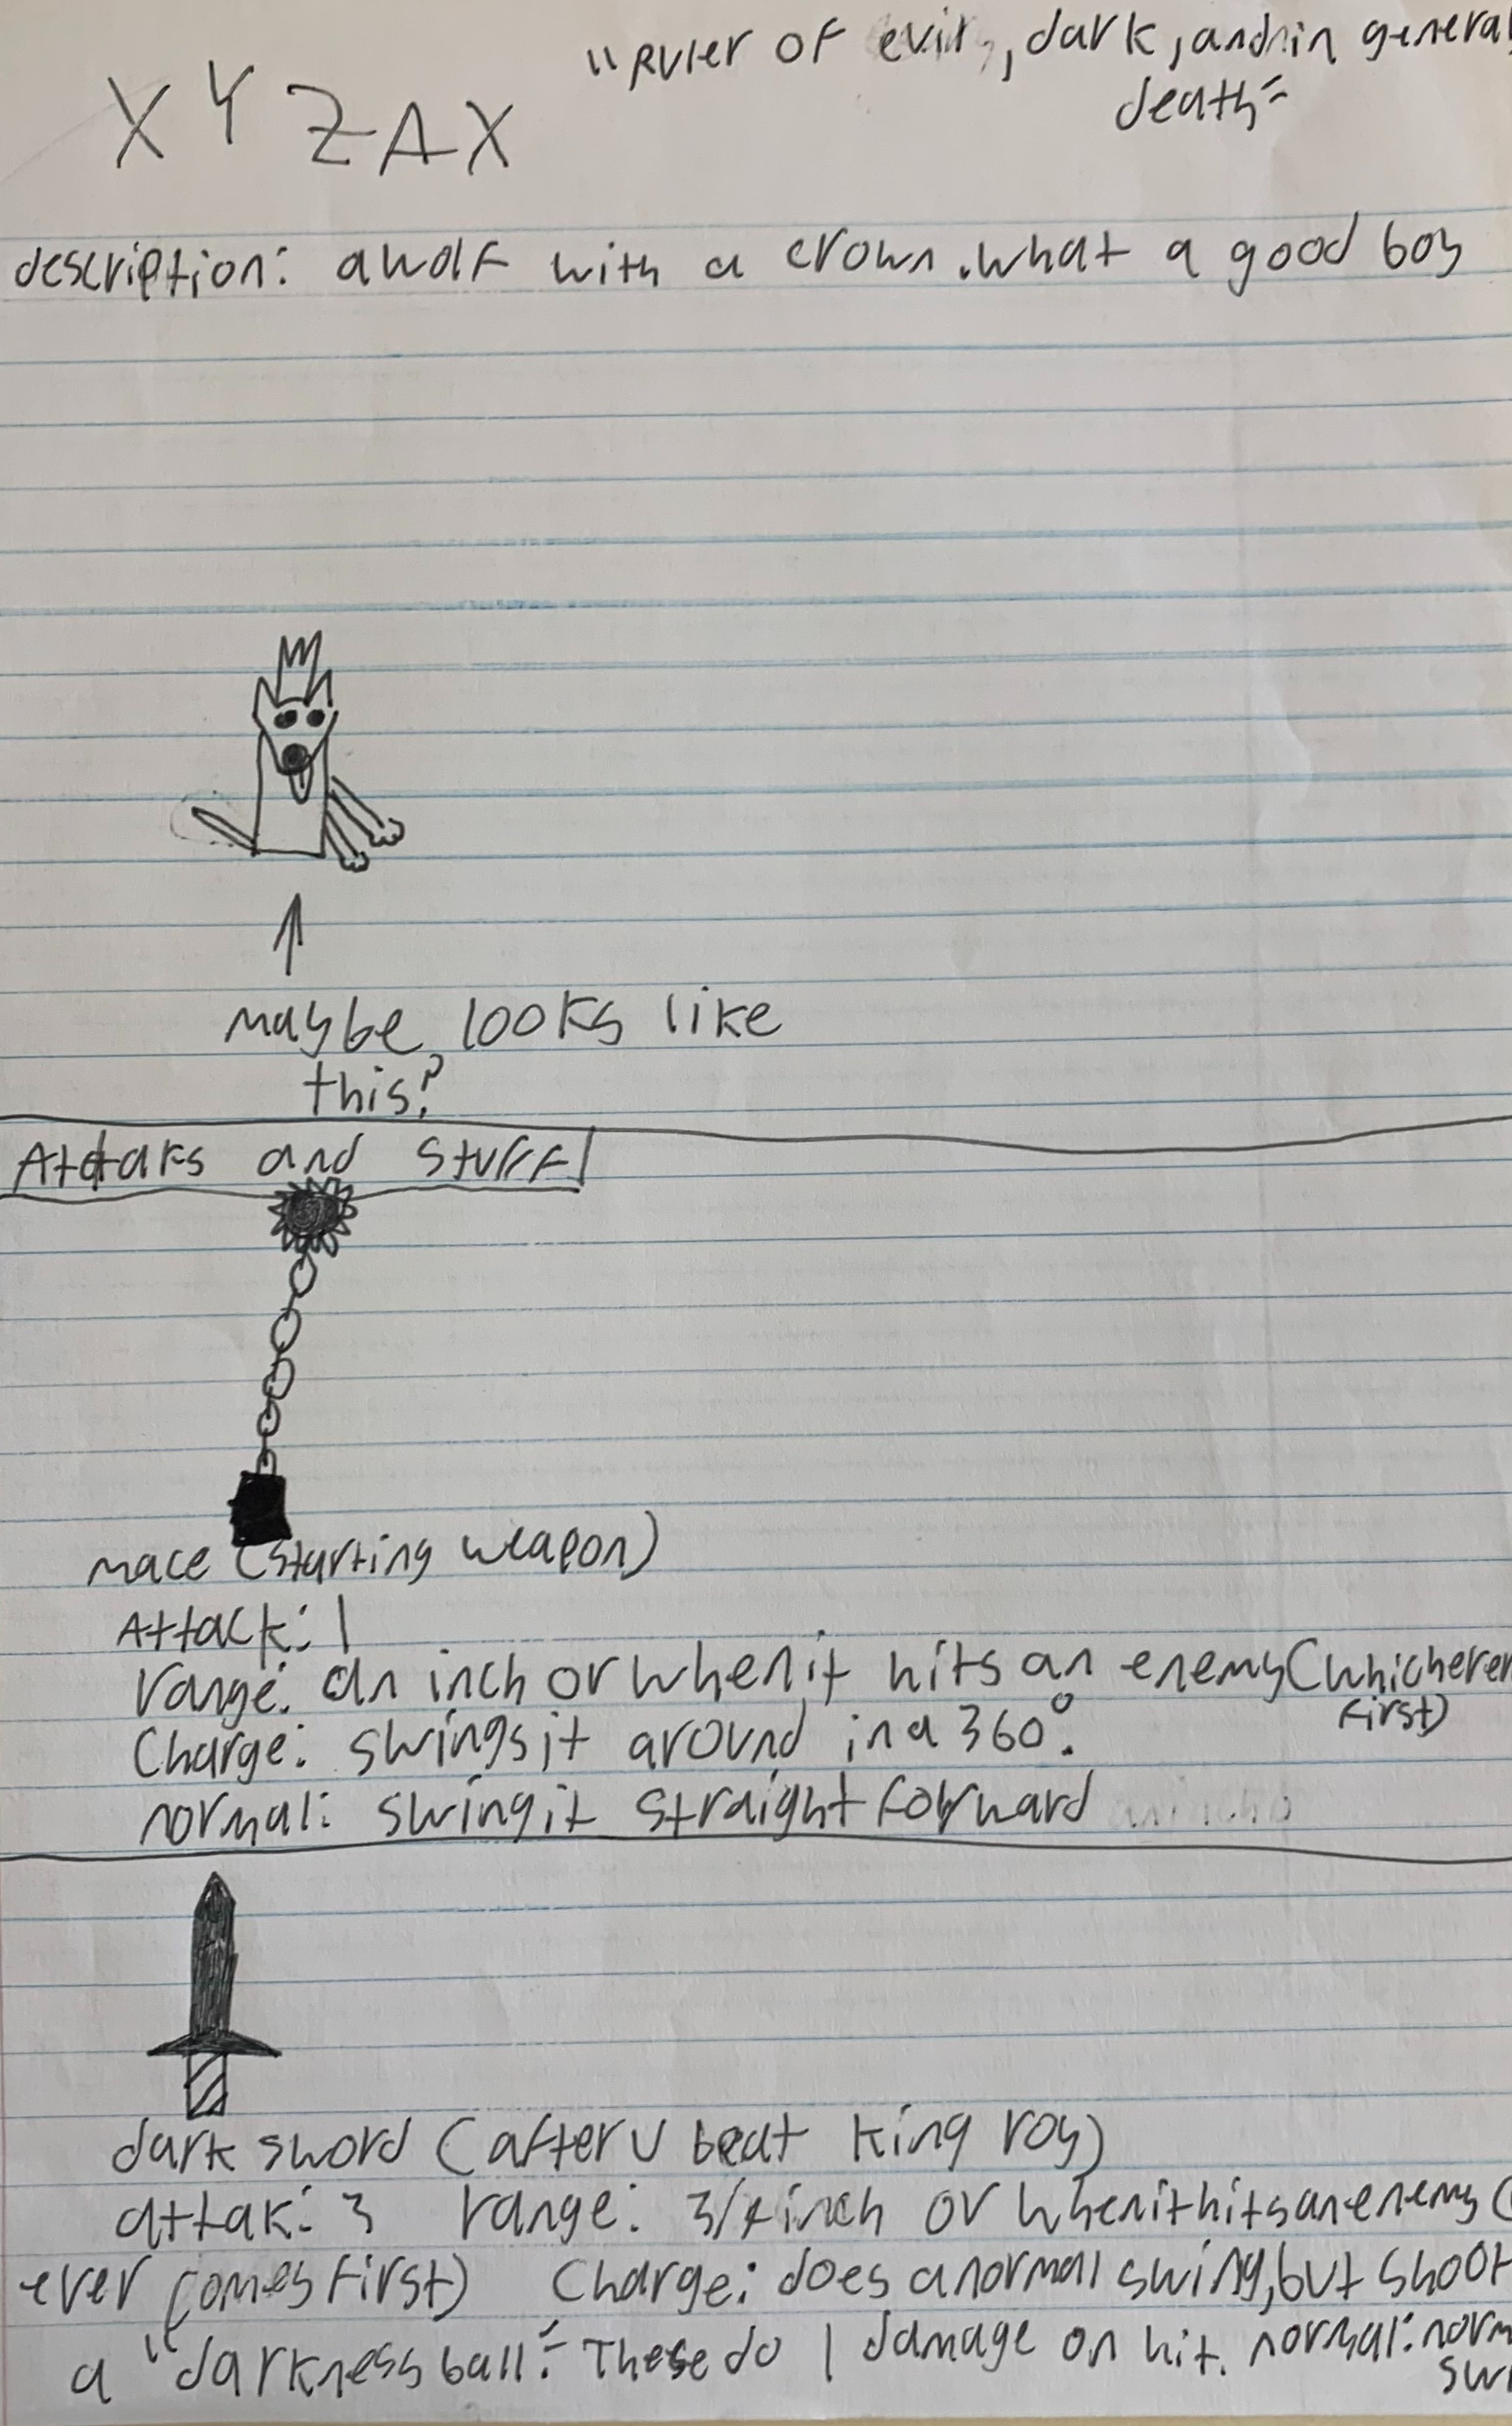 "Ruler of evil, dark, and in general
death"
XYZAX
description: a wolf with a crown. what a good boy
maybe looks like
this?
Attaks and stuff
mace (starting weapon)
Attack: 1
range: an inch or when it hits an enemy (whicherer
first)
Charge: swings it around in a 360°.
normal: swing it straight forward
dark sword (after u beat king roy)
attak: 3 range: 3/4 inch or when it hits an enemy (
ever comes first) Charge: does a normal swing, but shoot
a "darkness ball." These do 1 damage on hit. normal: norm
swi